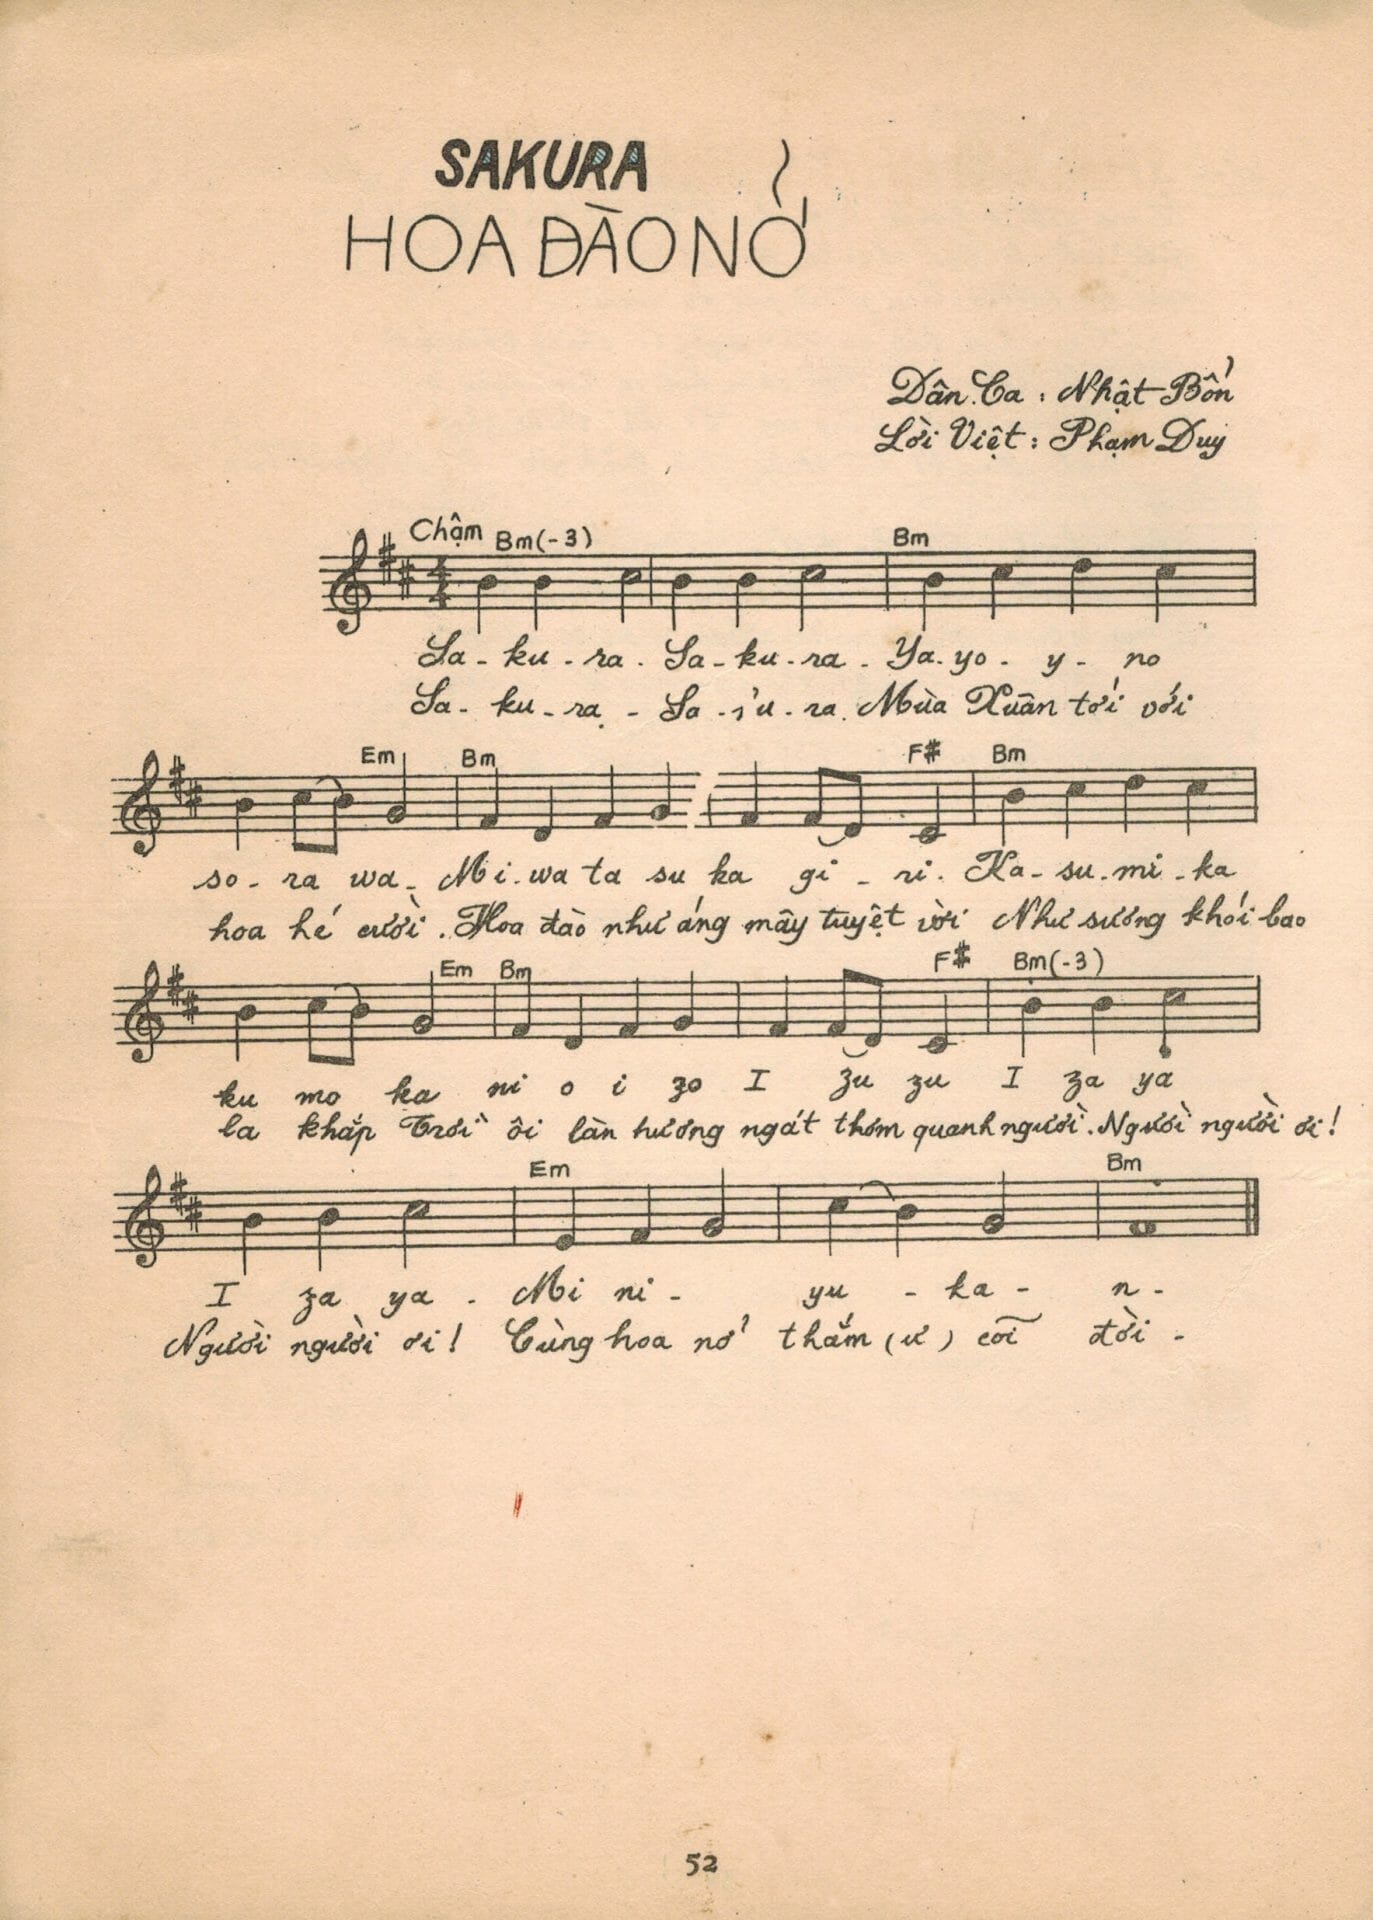 SAKURA
HOA ĐÀO NỞ
Dân Ca : Nhật Bổn
Lời Việt : Phạm Duy
Chậm Bm(-3) Bm
4 4
Sa - ku - ra - Sa - ku - ra - Ya - yo - y - no
Sa - ku - ra - Sa - ra. Mùa Xuân tới với
Em Bm F# Bm
so - ra wa - Mi - wa ta su ka gi - ri. Ka - su - mi - ka
hoa hé cười. Hoa đào như áng mây tuyệt vời Như sương khói bao
Em Bm F# Bm(-3)
ku mo ka ni o i zo I zu zu I za ya
la khắp Trời ôi làn hương ngát thơm quanh người. Người người ơi!
Em Bm
I za ya - Mi ni - yu - ka - n -
Người người ơi! Cùng hoa nở thắm (ư) cõi đời -
52